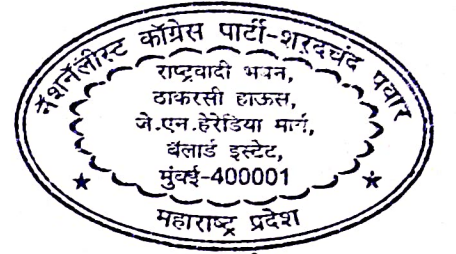 नॅशनॅलीस्ट काँग्रेस पार्टी-शरदचंद्र पवार
राष्ट्रवादी भवन,
ठाकरसी हाऊस,
जे.एन.हेरेडिया मार्ग,
बॅलार्ड इस्टेट,
मुंबई-400001
महाराष्ट्र प्रदेश